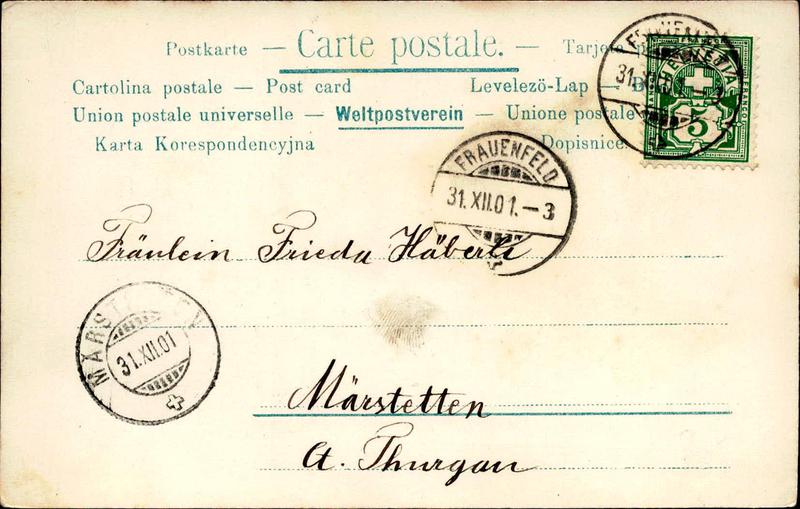 Postkarte — Carte postale. — Tarjeta
Cartolina postale — Post card Levelezö-Lap —
Union postale universelle — Weltpostverein — Unione postale
Karta Korespondencyjna Dopisnice.
HELVETIA
FRANCO
5
31.X
FRAUENFELD
31.XII.01.–3
Fräulein Frieda Häberli
31.XII.01
Märstetten
Ct. Thurgau